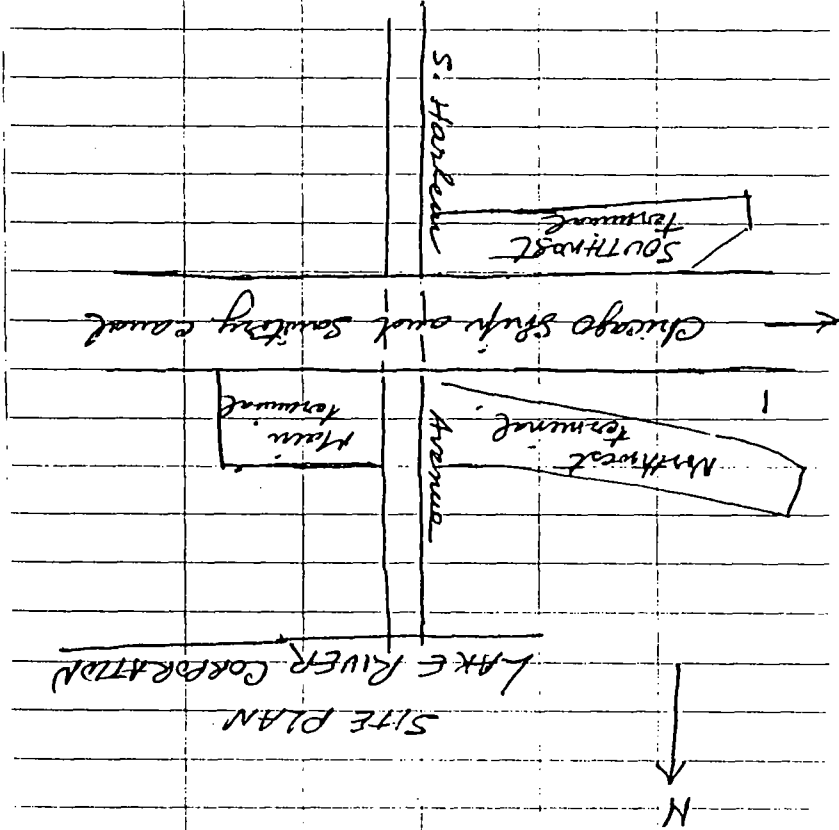 N
SITE PLAN
LAKE RIVER CORPORATION
Northwest
terminal
Avenue
Main
terminal
Chicago Ship and Sanitary Canal
SOUTHWEST
terminal
S. Harlem